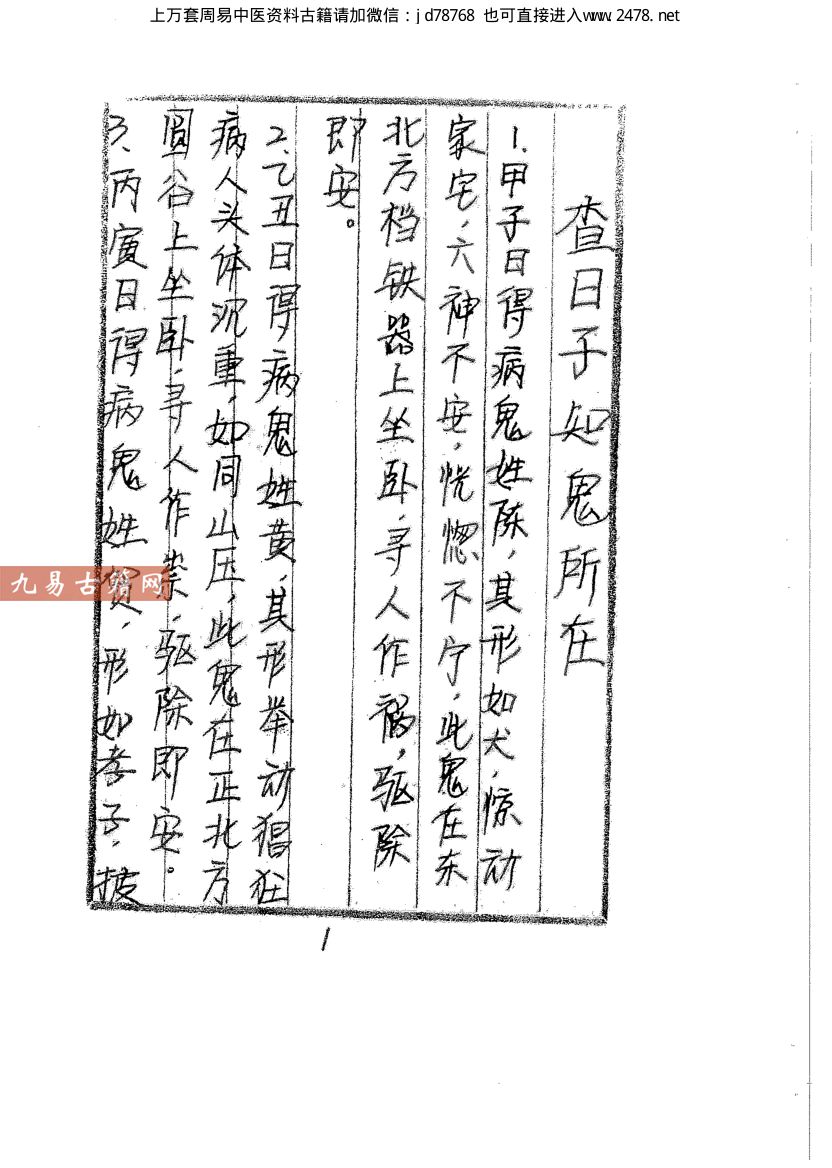 上万套周易中医资料古籍请加微信：jd78768 也可直接进入www.2478.net
查日子知鬼所在
1.甲子日得病鬼姓陈，其形如犬，惊动
家宅，六神不安，恍惚不宁，此鬼在东
北方档铁器上坐卧，寻人作祸，驱除
即安。
2、乙丑日得病鬼姓黄，其形举动猖狂
病人头体沉重，如同山压，此鬼在正北方
圆谷上坐卧，寻人作祟，驱除即安。
3、丙寅日得病鬼姓贾，形如孝子，披
九易古籍网
1